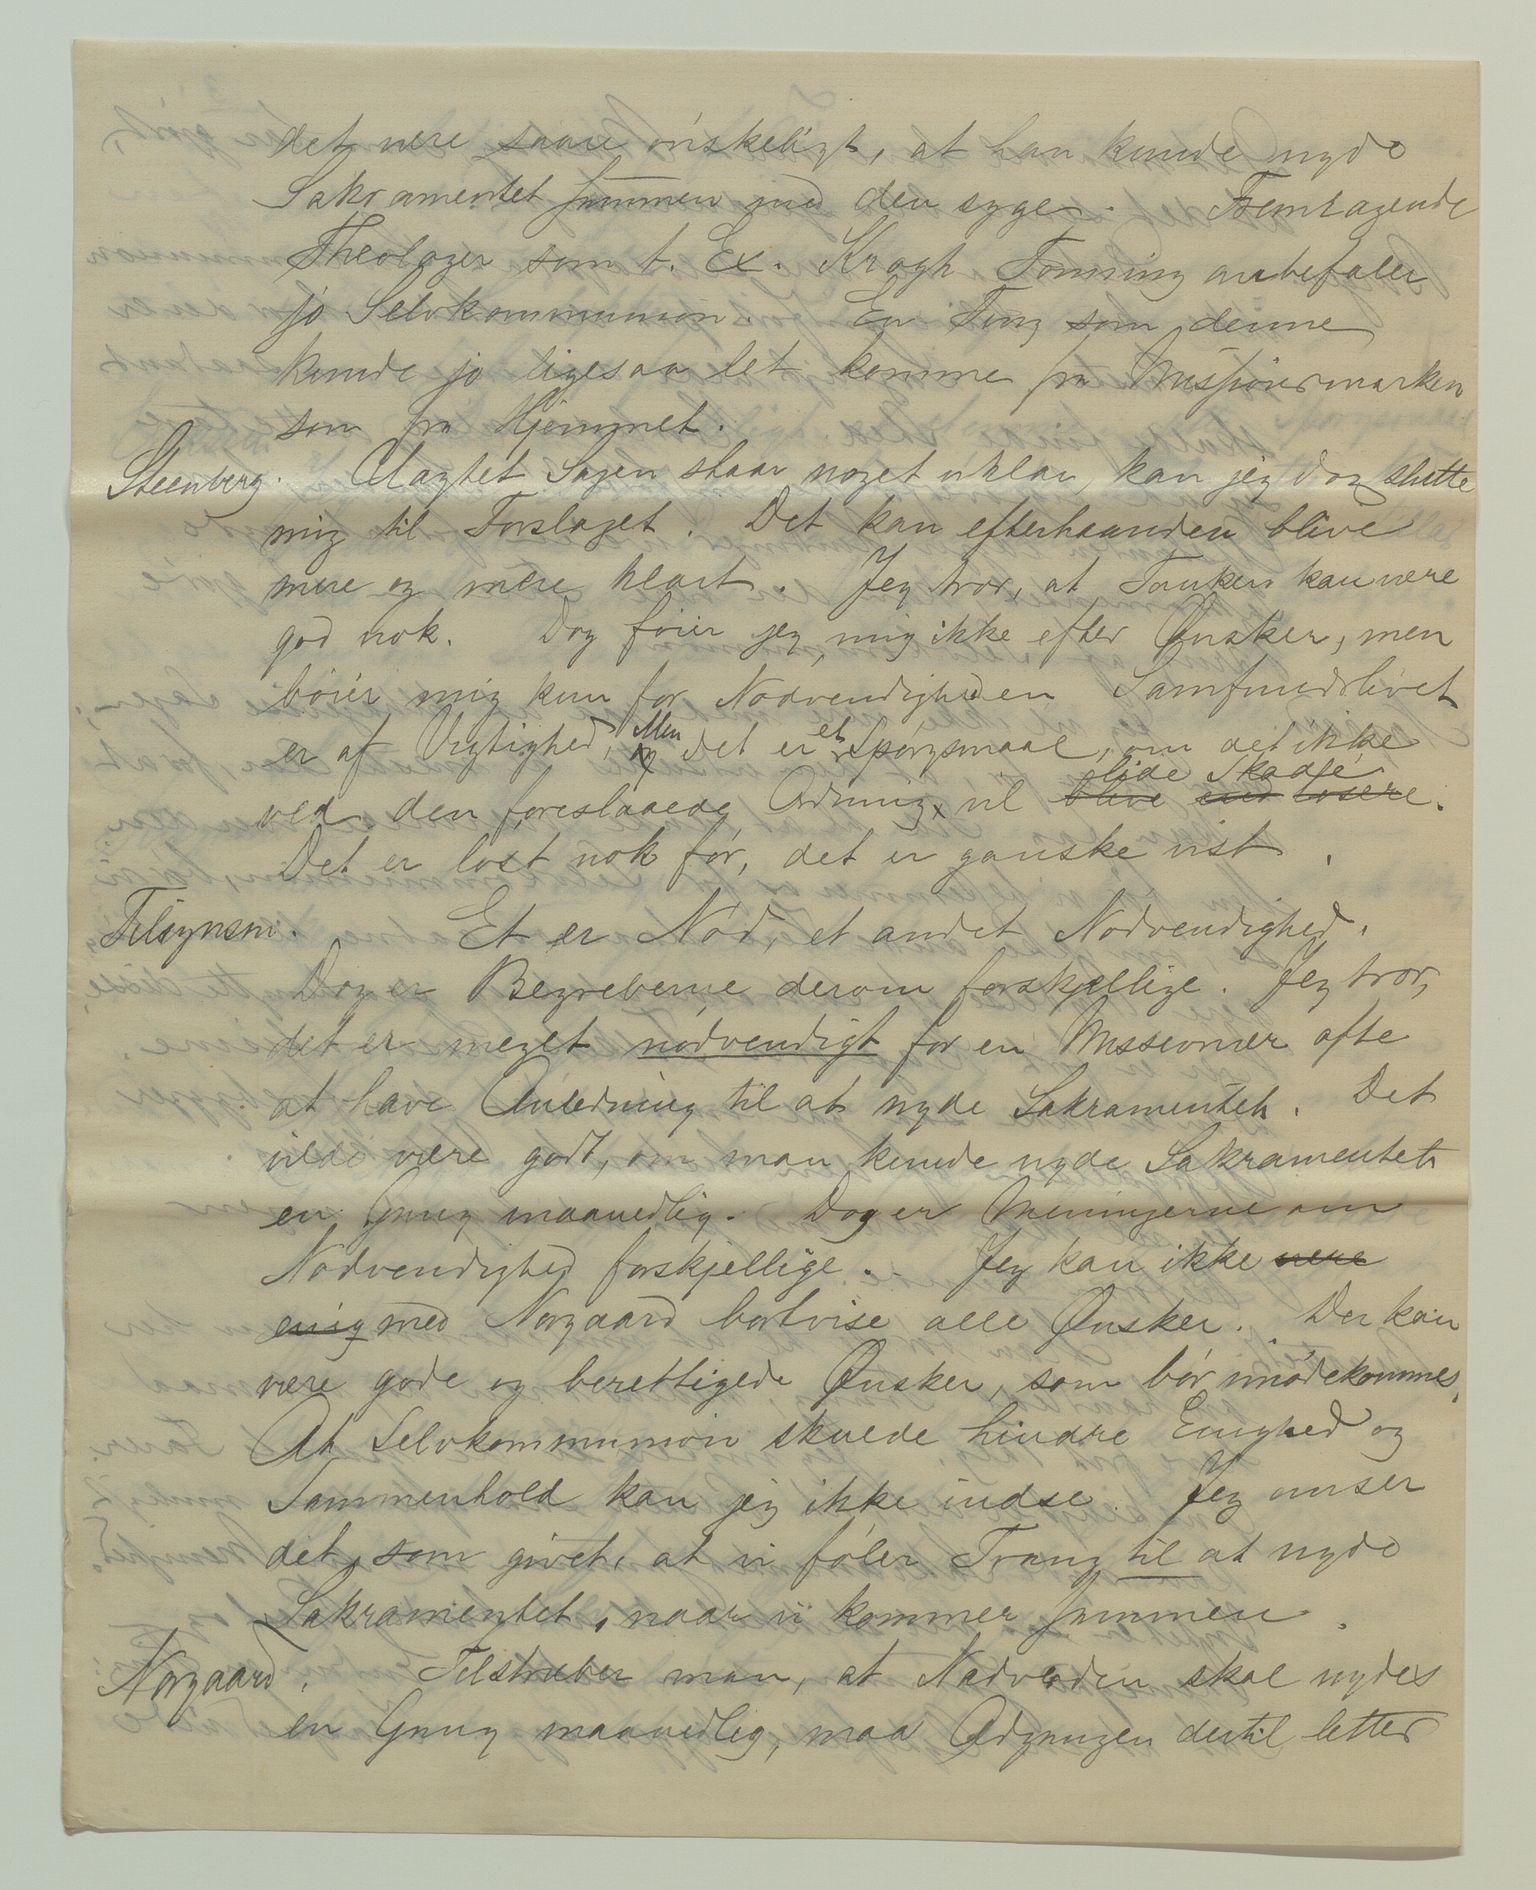 det være saare ønskeligt, at han kunde nyde
Sakramentet sammen med den syge. Fremragende
Theologer som t. Ex. Krogh Tonning anbefaler
jo Selvkommunion. En Ting som denne
kunde jo ligesaa let komme fra Missionsmarken
som fra Hjemmet.
Steenberg. Uagtet Sagen staar noget uklar, kan jeg dog slutte
mig til Forslaget. Det kan efterhaanden blive
mere og mere klart. Jeg tror, at Tanken kan være
god nok. Dog føier jeg mig ikke efter Ønsker, men
bøier mig kun for Nødvendigheden Samfundslivet
er af Vigtighed, Men det er et Spørgsmaal, om det ikke
ved den foreslaaede Ordning vil blive end løsere. lide Skade
Det er løst nok før, det er ganske vist.
Tilsynsm. Et er Nød, et andet Nødvendighed.
Dog er Begreberne derom forskjellige. Jeg tror,
det er meget nødvendigt for en Missionær ofte
at have Anledning til at nyde Sakramentet. Det
vilde være godt, om man kunde nyde Sakramentet
en Gang maanedlig. Dog er Meningerne om
Nødvendighed forskjellige. Jeg kan ikke være
enig med Norgaard bortvise alle Ønsker. Der kan
være gode og berettigede Ønsker, som bør imødekommes.
At Selvkommunion skulde hindre Enighed og
Sammenhold kan jeg ikke indse. Jeg anser
det som givet, at vi føler Trang til at nyde
Sakramentet, naar vi kommer sammen.
Norgaard. Tilstræber man, at Nadverden skal nydes
en Gang maanedlig, maa Adgangen dertil lettes